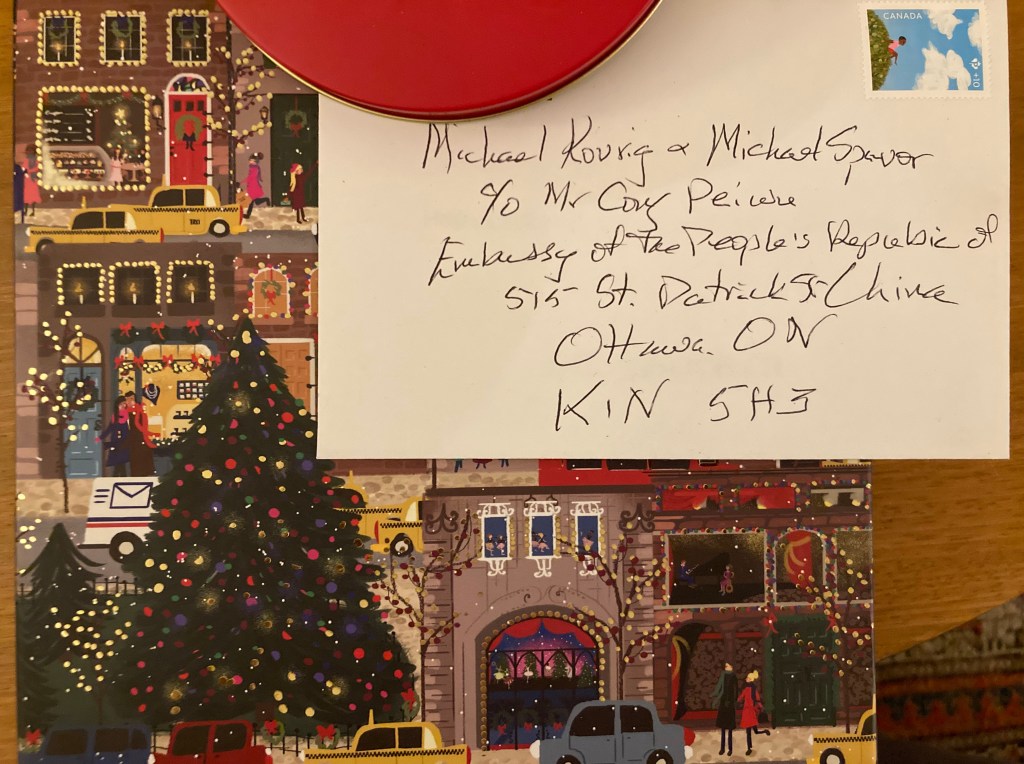 CANADA
P +10
Michael Kovrig & Michael Spavor
c/o Mr Cong Peiwu
Embassy of The People's Republic of
515 St. Patrick St China
Ottawa. ON
K1N 5H3
TAXI